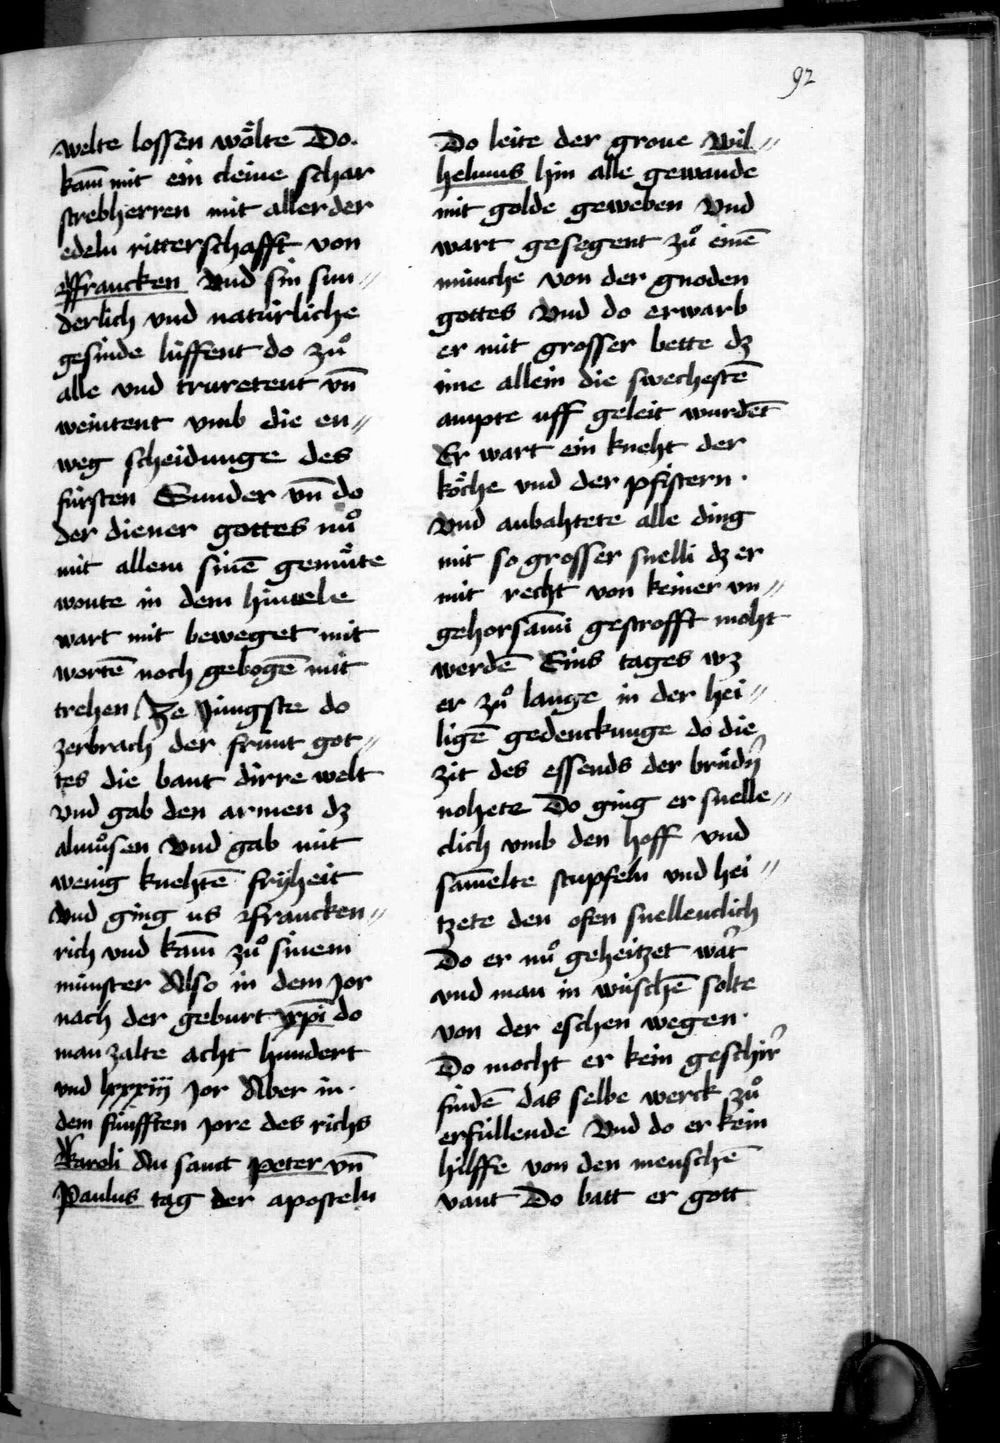 92
welte lossen wo᷑lte Do.
kam̄ mit ein cleine schar
strebherren mit aller der
edeln ritterschafft von
ffrancken Vnd sin sun„
derlich vnd natúrliche
gesinde lúffent do zuͦ
alle vnd truretent vn̄
weintent vmb die en„
weg scheidunge des
fúrsten Sunder vn̄ do
der diener gottes nuͦ
mit allem sinē gemuͤte
wonte in dem himele
wart mit beweget mit
wortē noch gebogē mit
trehen Ze Jungste do
zerbrach der frúnt got„
tes die bant dirre welt
vnd gab den armen dz
almuͦsen Vnd gab mit
wenig knehtē friheit
vnd ging us ffrancken„
rich vnd kam̄ zuͦ sinem
múnster Also in dem Jor
nach der geburt xp̄i do
man zalte acht hundert
vnd lxxxiij Jor Aber in.
dem fúnfften Jore des richs
karoli An sanct peter vn̄
Paulus tag der aposteln
Do leite der groue Wil„
helmus hin alle gewande
mit golde geweben Vnd
wart gesegent zuͦ einē
múnche von der gnoden
gottes Vnd do erwarb
er mit grosser bette dz
ime allein die swechestē
ampte uff geleit wurdēt
Er wart ein kneht der
ko᷑che vnd der pfistern.
Vnd anbahtete alle ding
mit so grosser snelli dz er
mit recht von keiner vn„
gehorsam̄i gestrofft moht
werdē Eins tages wz
er zuͦ lange in der hei„
ligē gedenckunge do die
zit des essends der bruͤd'n
nohete Do ging er snelle„
clich vmb den hoff vnd
sam̄elte stupfeln vnd hei„
tzete den ofen snelleclich
Do er nuͦ geheitzet wa'r
vnd man in wúschē solte
von der eschen wegen.
Do mocht er kein geschir'
findē das selbe werck zuͦ
erfúllende Vnd do er kein
hilffe von den menschē
vant Do batt er gott